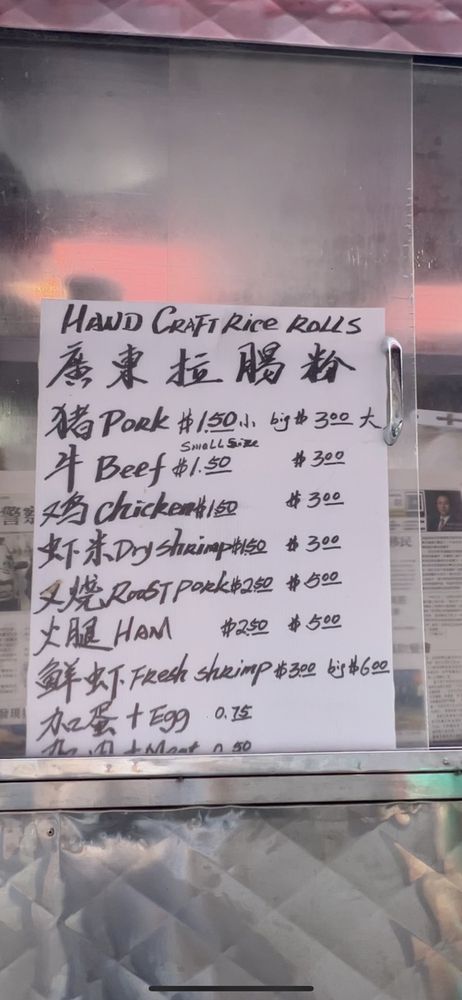 HAND CRAFT Rice ROLLS
廣東拉腸粉
猪 Pork $1.50 小 big $3.00 大
small size
牛 Beef $1.50 $3.00
鸡 chicken $1.50 $3.00
虾米 Dry shrimp $1.50 $3.00
叉烧 ROAST Pork $2.50 $5.00
火腿 HAM $2.50 $5.00
鲜虾 Fresh shrimp $3.00 big $6.00
加蛋 + Egg 0.75
加肉 + Meat 0.50